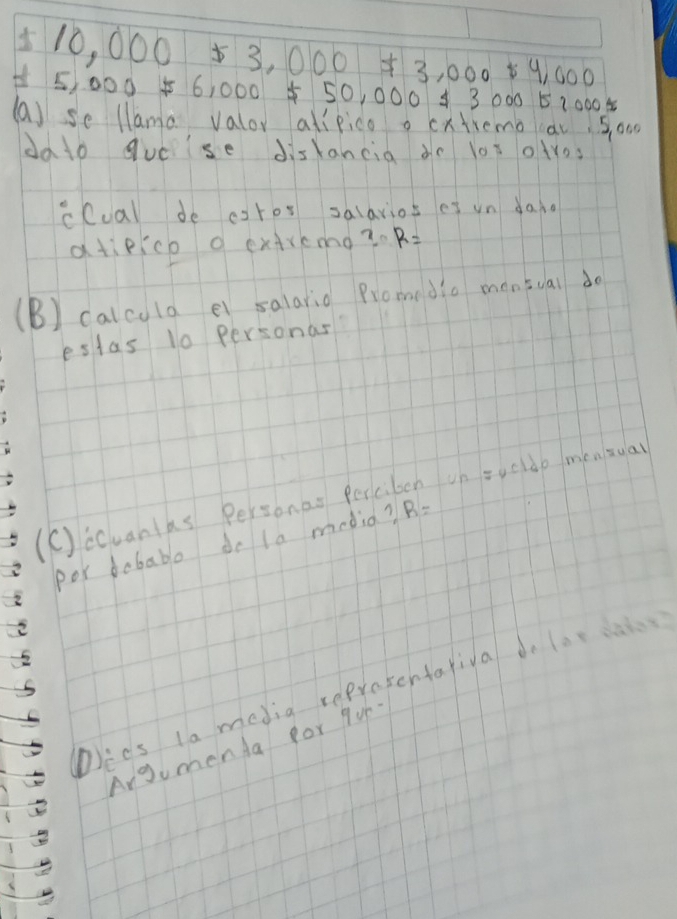 $ 10,000 $ 3,000 $ 3,000 $ 4,000
$ 5,000 $ 6,000 $ 50,000 $ 3000 $ 2000 $
(a) se llama valor atipico o extremo al 5,000
dato que se distancia de los otros
¿Cual de estos salarios es un dato
atipico o extremo? R=
(B) calcula el salario Promedio mensual de
estas 10 Personas
(C) ¿Cuantas Personas Perciben un sueldo mensual
por debabo de la media? R=
(D) ¿es la media representativa de los datos?
Argumenta Por que.